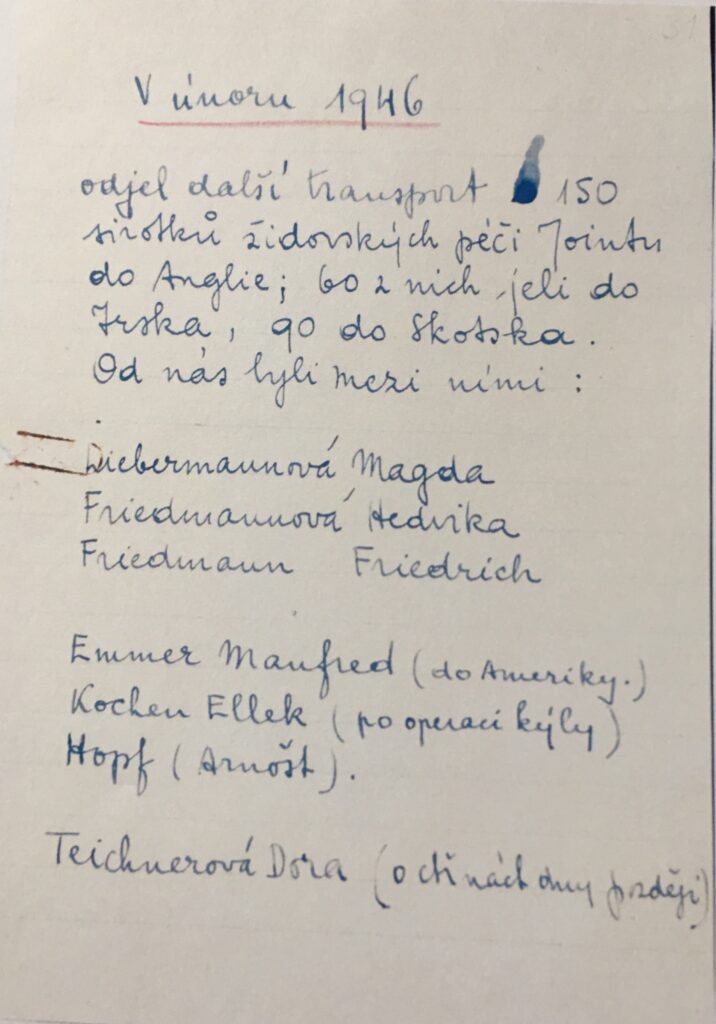 51
V únoru 1946
odjel další transport 150
sirotků židovských péčí Jointu
do Anglie; 60 z nich jeli do
Irska, 90 do Skotska.
Od nás byli mezi nimi :
Liebermannová Magda
Friedmannová Hedvika
Friedmann Friedrich
Emmer Manfred (do Ameriky.)
Kochen Ellek (po operaci kýly)
Hopf (Arnošt).
Teichnerová Dora (o čtrnáct dny později)